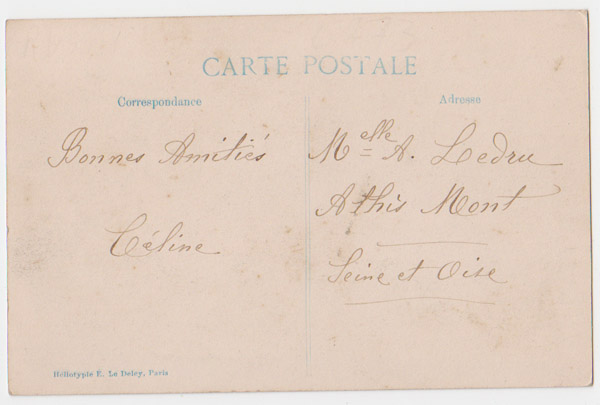 CARTE POSTALE
Correspondance
Adresse
Bonnes Amitiés
Céline
Melle A. Ledru
Athis Mont
Seine et Oise
Héliotypie E. Le Deley, Paris